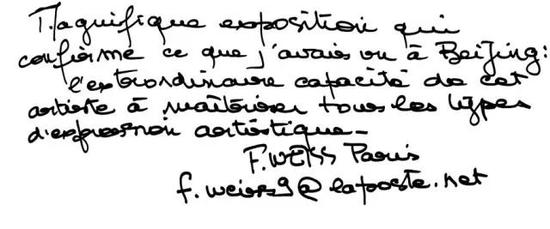 Magnifique exposition qui
confirme ce que j'avais vu à Beijing:
l'extraordinaire capacité de cet
artiste à maîtriser tous les types
d'expression artistique_
F.WEISS Paris
f.weiss9@laposte.net